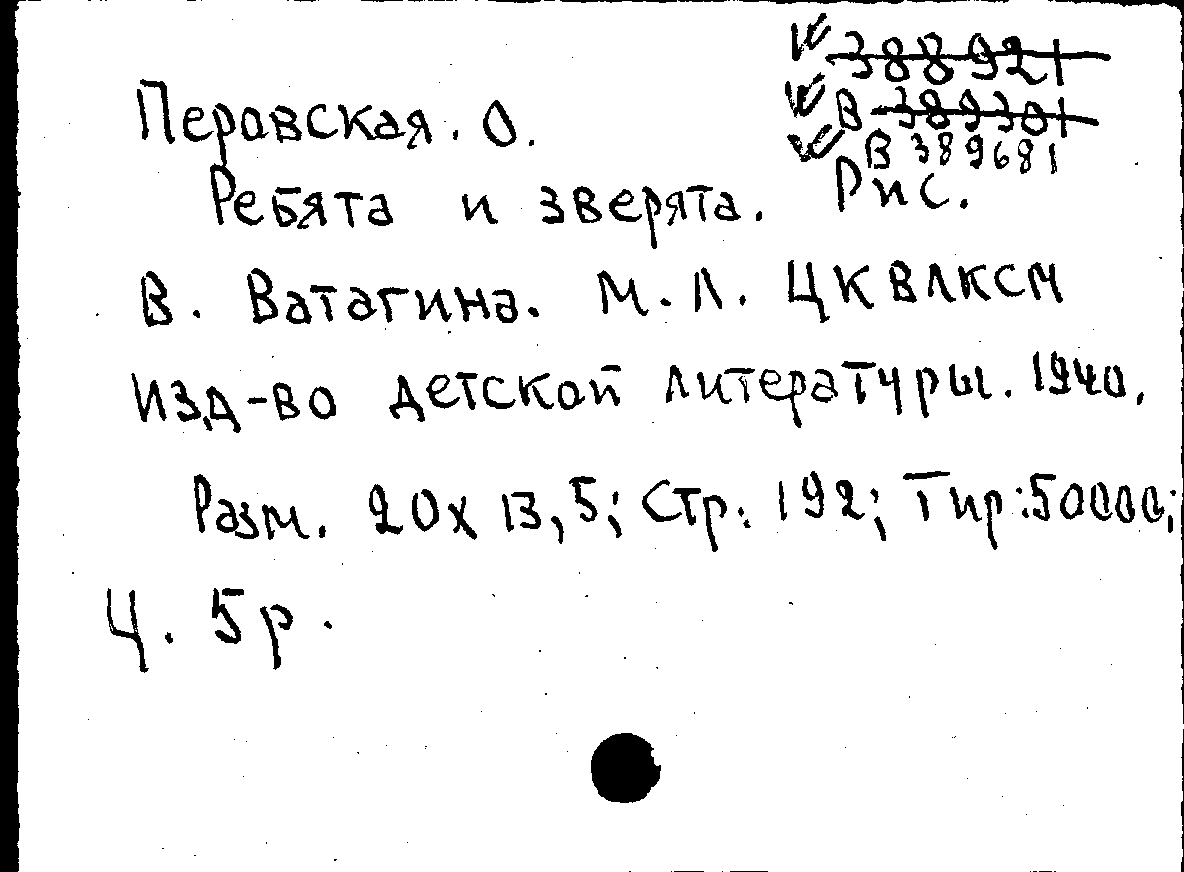 388921
В 389301
В 389681
Перовская. О.
Ребята и зверята. Рис.
В. Ватагина. М. Л. ЦК ВЛКСМ
изд-во детской литературы. 1940.
Разм. 20х13,5; Стр: 192; Тир: 50000;
Ц. 5р.